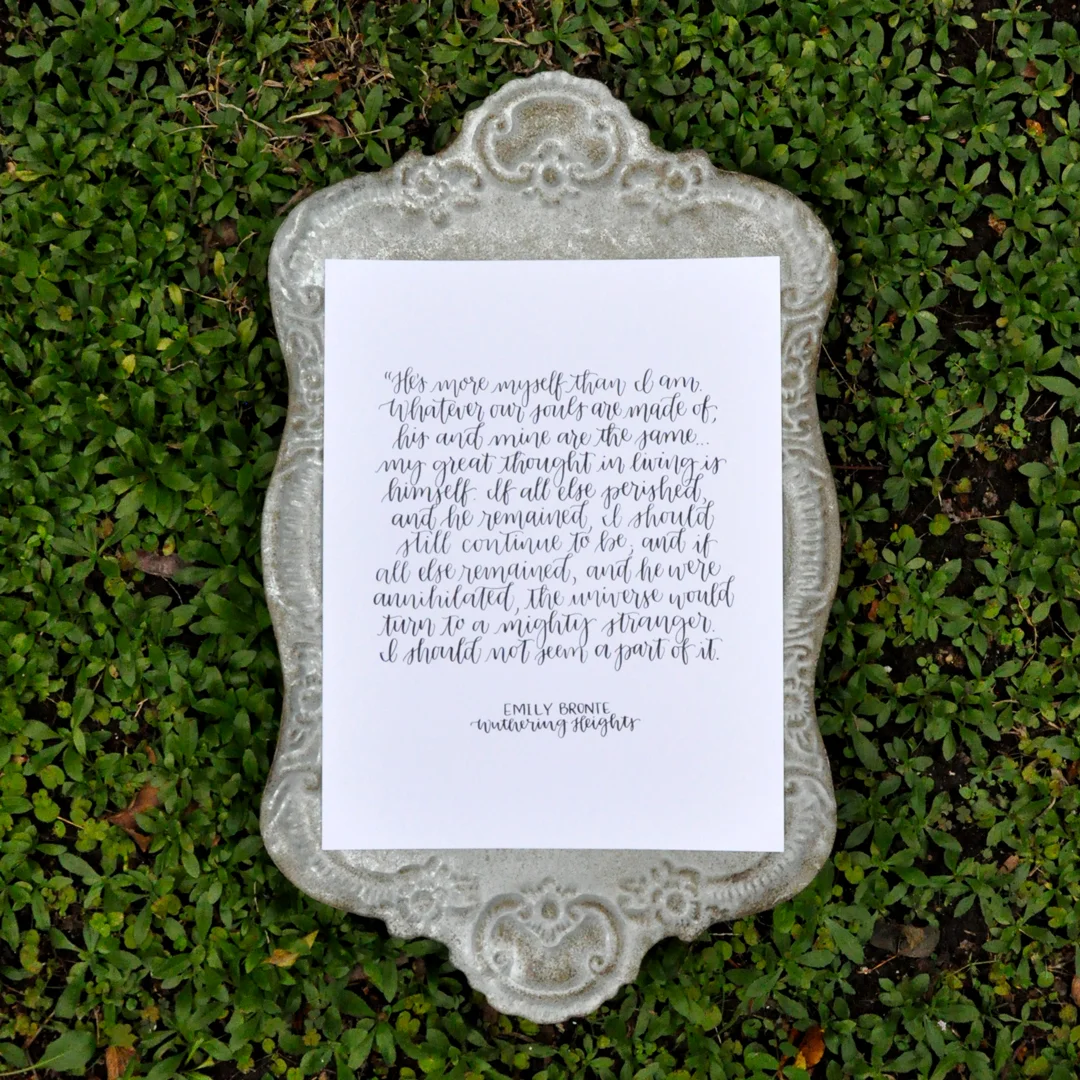 "He's more myself than I am.
Whatever our souls are made of,
his and mine are the same...
my great thought in living is
himself. If all else perished,
and he remained, I should
still continue to be, and if
all else remained, and he were
annihilated, the universe would
turn to a mighty stranger.
I should not seem a part of it.
EMILY BRONTE
Wuthering Heights